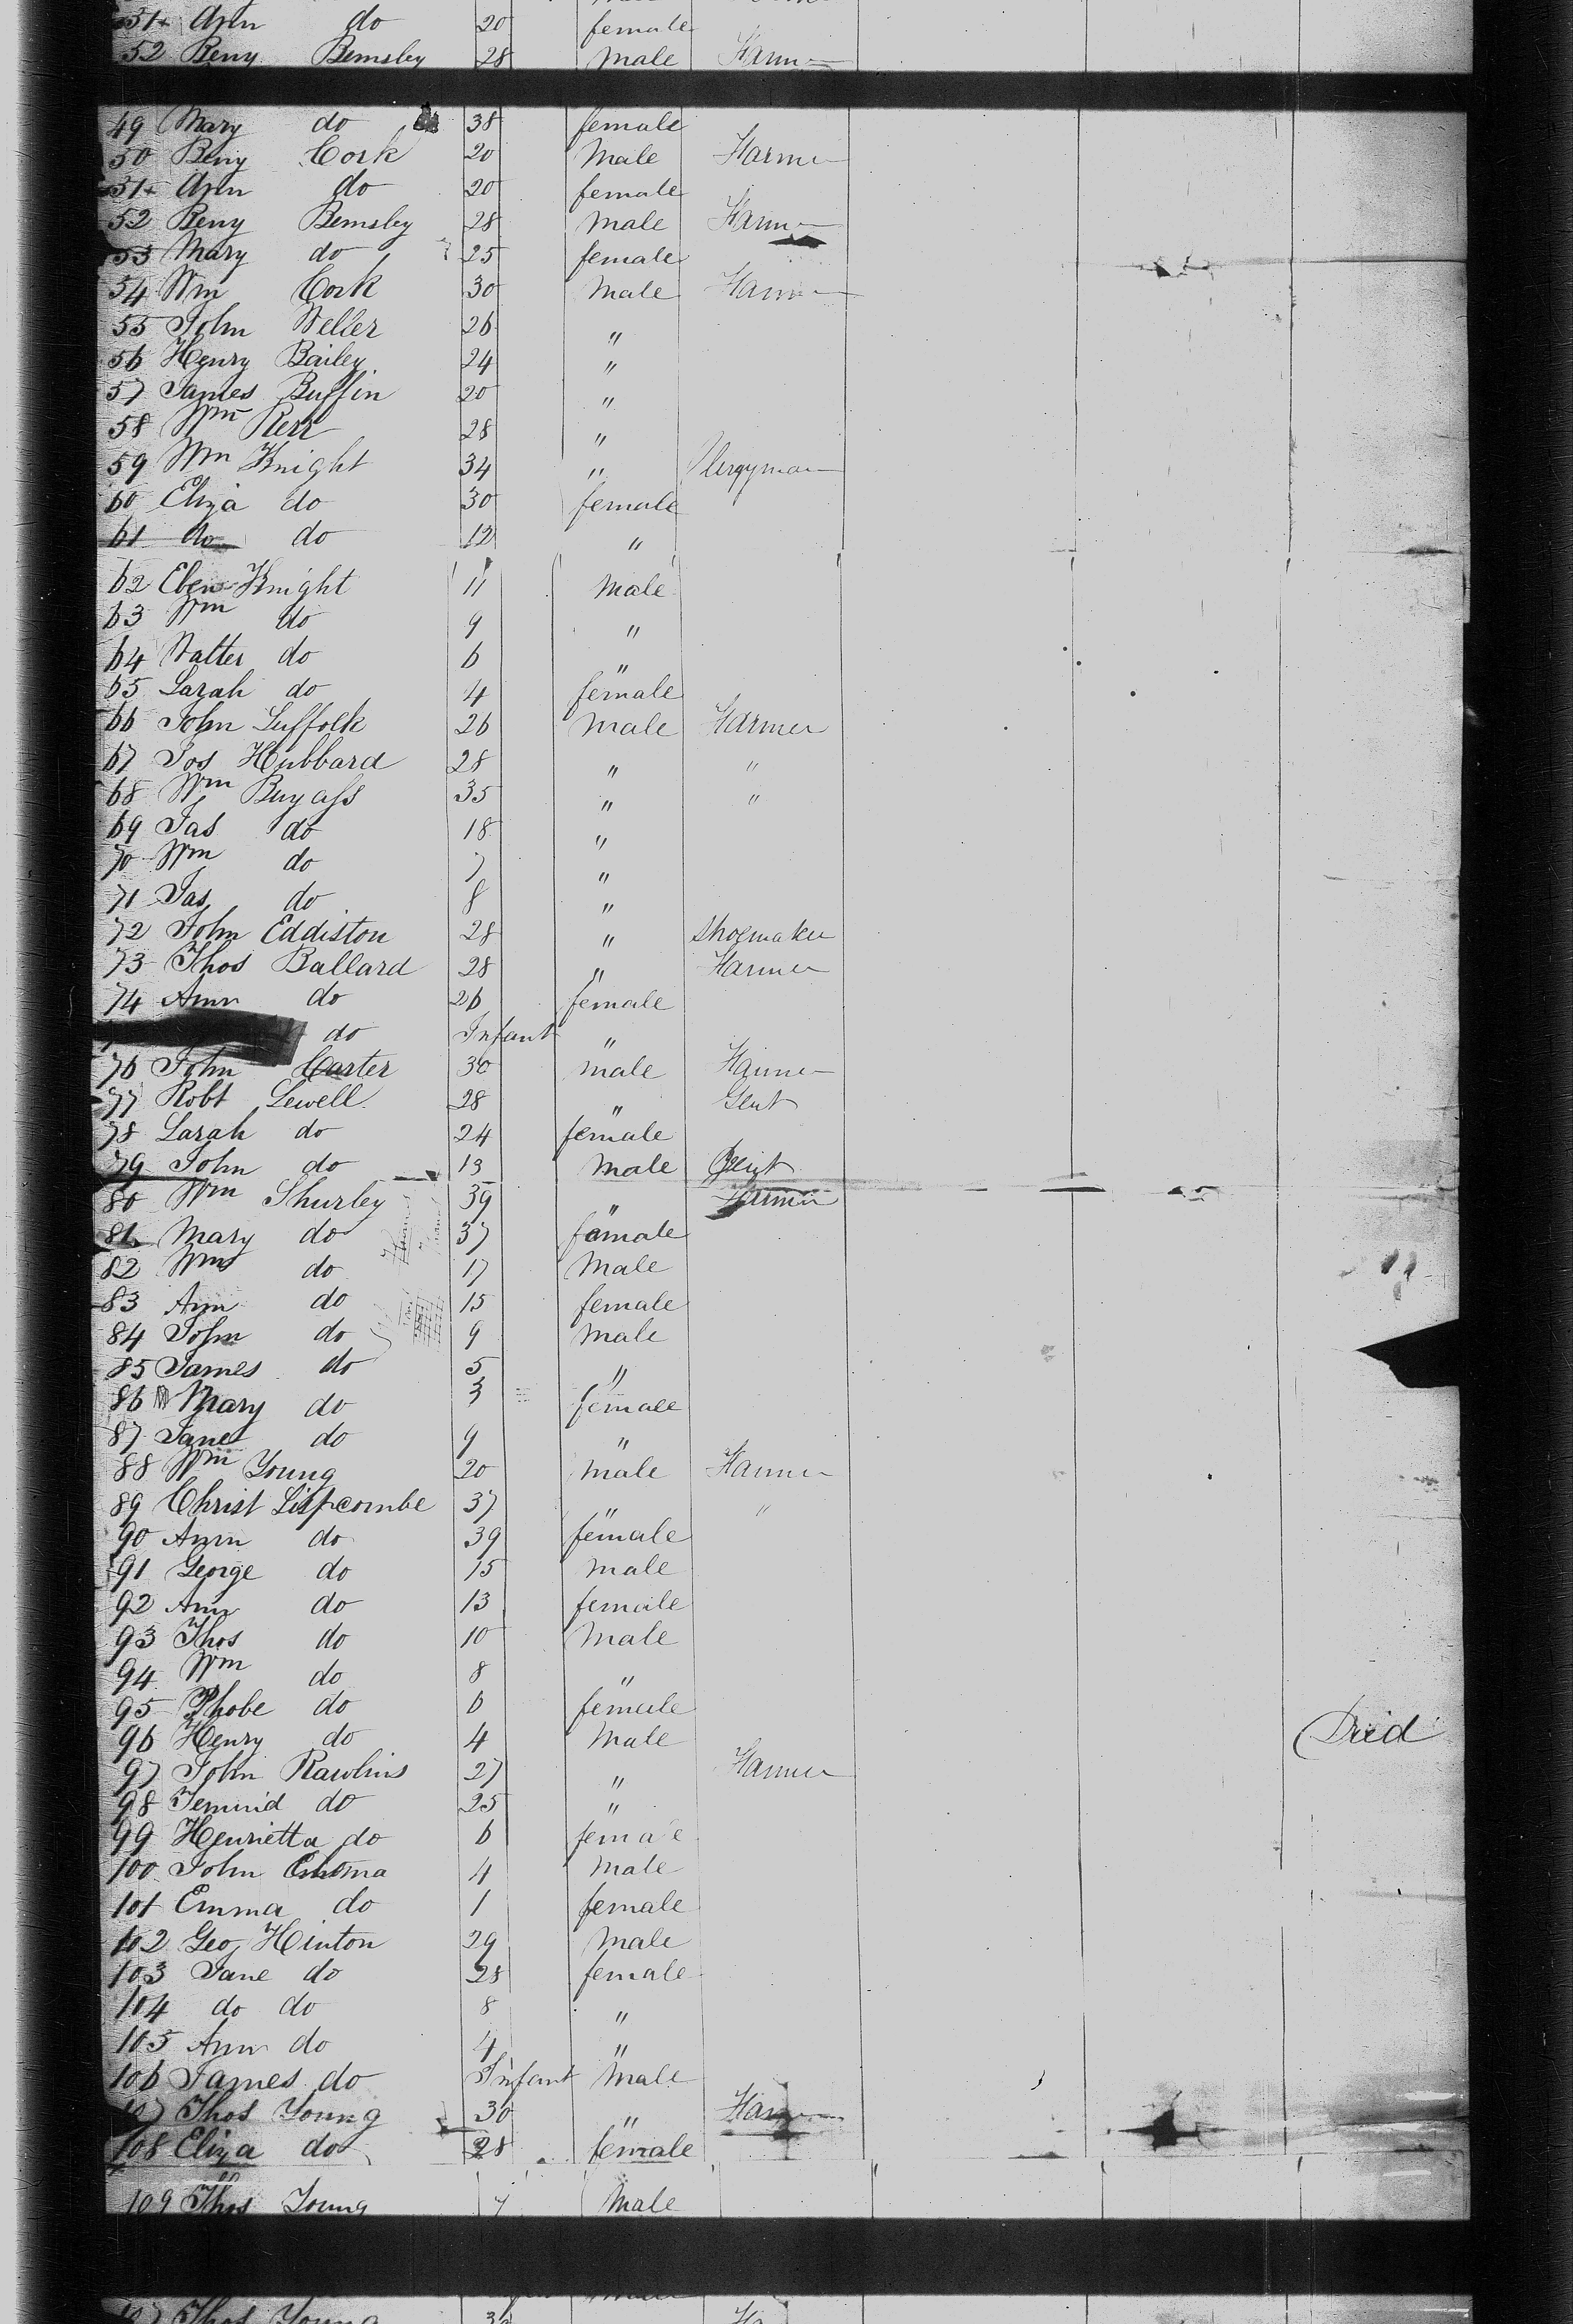 51 Ann do 20 female
52 Benj Bemsley 28 Male Farmer
49 Mary do 38 female
50 Benj Cork 20 Male Farmer
51 Ann do 20 female
52 Benj Bemsley 28 Male Farmer
53 Mary do 25 female
54 Wm Cork 30 Male Farmer
55 John Weller 26 "
56 Henry Bailey 24 "
57 James Buffin 20 "
58 Wm Kerr 28 "
59 Wm Knight 34 " Clergyman
60 Eliza do 30 female
61 do do 12 "
62 Eben Knight 11 Male
63 Wm do 9 "
64 Walter do 6 "
65 Sarah do 4 female
66 John Suffolk 26 Male Farmer
67 Jos Hubbard 28 " "
68 Wm Buyass 35 " "
69 Jas do 18 "
70 Wm do 7 "
71 Jas do 8 "
72 John Eddiston 28 " Shoemaker
73 Thos Ballard 28 " Farmer
74 Ann do 26 female
do Infant "
76 John Carter 30 male Farmer
77 Robt Sewell 28 " Gent
78 Sarah do 24 female
79 John do 13 Male Gent
80 Wm Shurley 39 " Farmer
81 Mary do 37 female
82 Wm do 17 Male
83 Ann do 15 female
84 John do 9 Male
85 James do 5 "
86 Mary do 3 female
87 Jane do 9 "
88 Wm Young 20 Male Farmer
89 Christ Lipscombe 37 " "
90 Ann do 39 female
91 George do 15 Male
92 Ann do 13 female
93 Thos do 10 Male
94 Wm do 8 "
95 Phobe do 6 female
96 Henry do 4 Male Died
97 John Rawlins 27 " Farmer
98 Jemind do 25 "
99 Henrietta do 6 female
100 John 4 Male
101 Emma do 1 female
102 Geo Hinton 29 Male
103 Jane do 28 female
104 do do 8 "
105 Ann do 4 "
106 James do Infant Male
107 Thos Young 30 " Farmer
108 Eliza do 28 female
109 Thos Young 7 Male
107 Thos Young 30